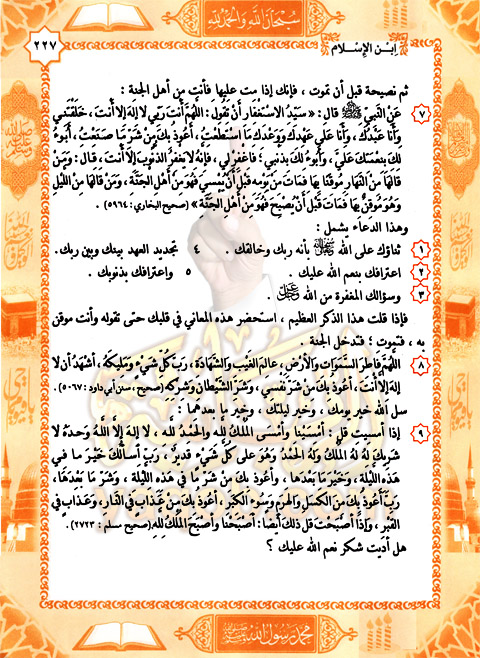 سُبْحَانَ اللَّهِ وَالْحَمْدُ لِلَّهِ
ابن الإسلام
٢٢٧
ثم نصيحة قبل أن تموت ، فإنك إذا مت عليها فأنت من أهل الجنة :
٧ عَنِ النَّبِيِّ ﷺ قال : « سَيِّدُ الاسْتِغْفَارِ أَنْ تَقُولَ : اللَّهُمَّ أَنْتَ رَبِّي لا إِلَهَ إِلا أَنْتَ ، خَلَقْتَنِي
وَأَنَا عَبْدُكَ ، وَأَنَا عَلَى عَهْدِكَ وَوَعْدِكَ مَا اسْتَطَعْتُ ، أَعُوذُ بِكَ مِنْ شَرِّ مَا صَنَعْتُ ، أَبُوءُ
لَكَ بِنِعْمَتِكَ عَلَيَّ ، وَأَبُوءُ لَكَ بِذَنْبِي ؛ فَاغْفِرْ لِي ، فَإِنَّهُ لا يَغْفِرُ الذُّنُوبَ إِلا أَنْتَ ، قَالَ : وَمَنْ
قَالَهَا مِنَ النَّهَارِ مُوقِنًا بِهَا فَمَاتَ مِنْ يَوْمِهِ قَبْلَ أَنْ يُمْسِيَ فَهُوَ مِنْ أَهْلِ الجَنَّةِ ، وَمَنْ قَالَهَا مِنَ اللَّيْلِ
وَهُوَ مُوقِنٌ بِهَا فَمَاتَ قَبْلَ أَنْ يُصْبِحَ فَهُوَ مِنْ أَهْلِ الجَنَّةِ » (صحيح البخاري: ٥٩٦٤) .
وهذا الدعاء يشمل :
١ ثناؤك على الله بأنه ربك وخالقك . ٤ تجديد العهد بينك وبين ربك .
٢ اعترافك بنعم الله عليك . ٥ واعترافك بذنوبك .
٣ وسؤالك المغفرة من الله .
فإذا قلت هذا الذكر العظيم ، استحضر هذه المعاني في قلبك حتى تقوله وأنت موقن
به ، فتموت ؛ فتدخل الجنة .
٨ اللَّهُمَّ فَاطِرَ السَّمَوَاتِ وَالأَرْضِ ، عَالِمَ الغَيْبِ وَالشَّهَادَةِ ، رَبَّ كُلِّ شَيْءٍ وَمَلِيكَهُ ، أَشْهَدُ أَنْ لا
إِلَهَ إِلا أَنْتَ ، أَعُوذُ بِكَ مِنْ شَرِّ نَفْسِي ، وَشَرِّ الشَّيْطَانِ وَشِرْكِهِ (صحيح ، سنن أبي داود : ٥٠٦٧) .
سل الله خير يومك ، وخير ليلتك ، وخير ما بعدهما :
٩ إذا أمسيت قل : أَمْسَيْنَا وَأَمْسَى المُلْكُ لِلَّهِ وَالحَمْدُ لِلَّهِ ، لا إِلَهَ إِلَّا اللَّهُ وَحْدَهُ لا
شَرِيكَ لَهُ لَهُ المُلْكُ وَلَهُ الحَمْدُ وَهُوَ عَلَى كُلِّ شَيْءٍ قَدِيرٌ ، رَبِّ أَسْأَلُكَ خَيْرَ مَا فِي
هَذِهِ اللَّيْلَةِ ، وَخَيْرَ مَا بَعْدَهَا ، وَأَعُوذُ بِكَ مِنْ شَرِّ مَا فِي هَذِهِ اللَّيْلَةِ ، وَشَرِّ مَا بَعْدَهَا ،
رَبِّ أَعُوذُ بِكَ مِنَ الكَسَلِ وَالهَرَمِ وَسُوءِ الكِبَرِ ، أَعُوذُ بِكَ مِنْ عَذَابٍ فِي النَّارِ ، وَعَذَابٍ فِي
القَبْرِ ، وَإِذَا أَصْبَحْتَ قُلْ ذَلِكَ أَيْضًا : أَصْبَحْنَا وَأَصْبَحَ المُلْكُ لِلَّهِ (صحيح مسلم : ٢٧٢٣) .
هل أديت شكر نعم الله عليك ؟
محمد رسول الله ﷺ